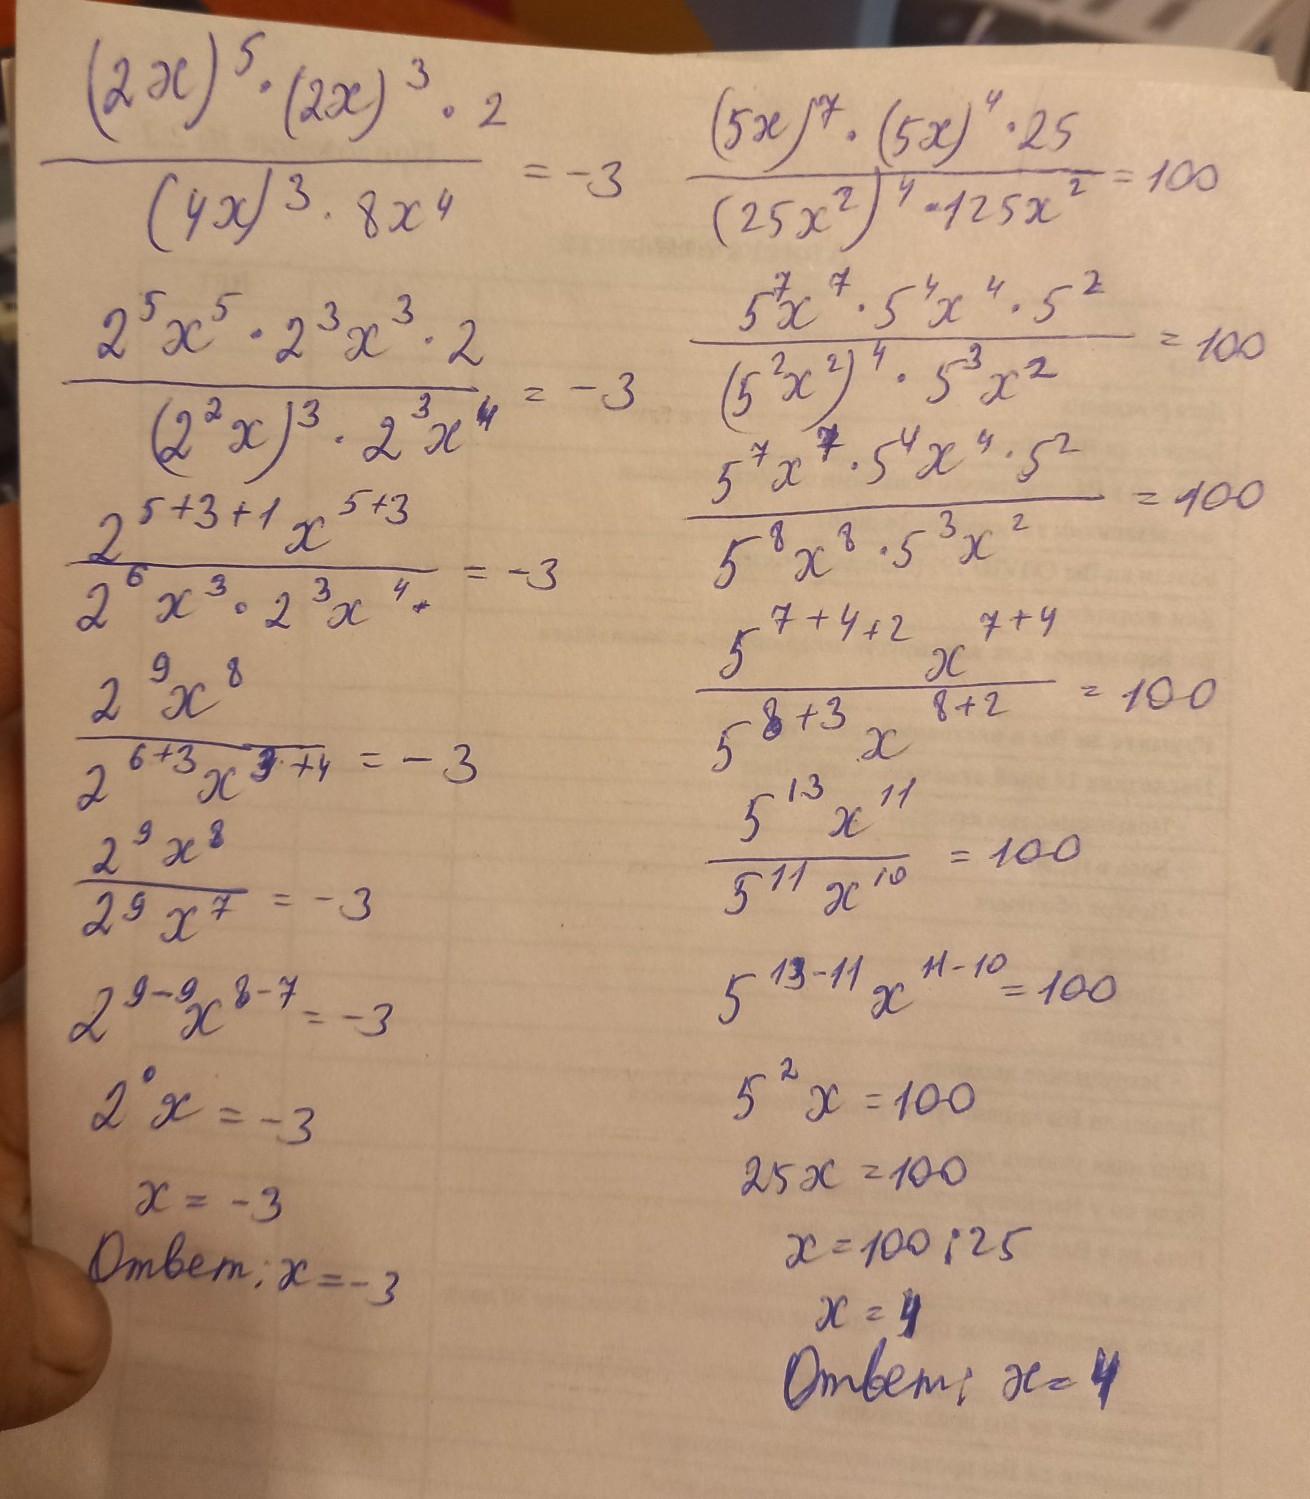 (2x)^5 · (2x)^3 · 2 / (4x)^3 · 8x^4 = -3
2^5x^5 · 2^3x^3 · 2 / (2^2x)^3 · 2^3x^4 = -3
2^{5+3+1} x^{5+3} / 2^6 x^3 · 2^3x^4 · = -3
2^9x^8 / 2^{6+3}x^{3+4} = -3
2^9x^8 / 2^9x^7 = -3
2^{9-9}x^{8-7} = -3
2^0x = -3
x = -3
Ответ: x = -3
(5x)^7 · (5x)^4 · 25 / (25x^2)^4 · 125x^2 = 100
5^7x^7 · 5^4x^4 · 5^2 / (5^2x^2)^4 · 5^3x^2 = 100
5^7x^7 · 5^4x^4 · 5^2 / 5^8x^8 · 5^3x^2 = 100
5^{7+4+2} x^{7+4} / 5^{8+3} x^{8+2} = 100
5^{13}x^{11} / 5^{11}x^{10} = 100
5^{13-11}x^{11-10} = 100
5^2x = 100
25x = 100
x = 100 : 25
x = 4
Ответ: x = 4